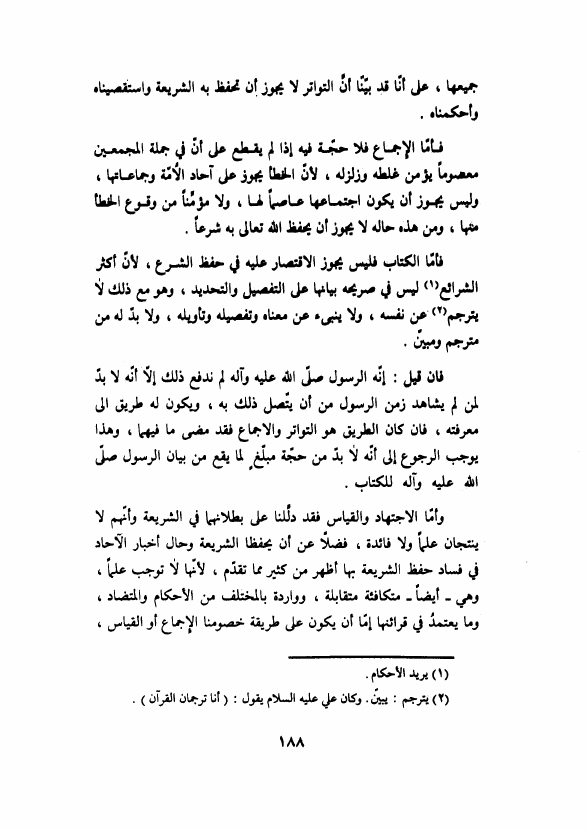 جميعها ، على أنّا قد بيّنّا أنَّ التواتر لا يجوز أن تحفظ به الشريعة واستقصيناه
وأحكمناه .
فـأمّا الإجمـاع فلا حجّـة فيه إذا لم يقـطع على أنّ في جملة المجمعـين
معصوماً يؤمن غلطه وزلزله ، لأنّ الخطأ يجوز على آحاد الأمّة وجماعـاتها ،
وليس يجـوز أن يكون اجتمـاعها عـاصماً لهـا ، ولا مؤمِّناً من وقـوع الخطأ
منها ، ومن هذه حاله لا يجوز أن يحفظ الله تعالى به شرعاً .
فأمّا الكتاب فليس يجوز الاقتصار عليه في حفظ الشـرع ، لأنّ أكثر
الشرائع(١) ليس في صريحه بيانها على التفصيل والتحديد ، وهو مع ذلك لا
يترجم(٢) عن نفسه ، ولا ينبىء عن معناه وتفصيله وتأويله ، ولا بدّ له من
مترجم ومبينّ .
فان قيل : إنّه الرسول صلّى الله عليه وآله لم ندفع ذلك إلّا أنّه لا بدّ
لمن لم يشاهد زمن الرسول من أن يتّصل ذلك به ، ويكون له طريق الى
معرفته ، فان كان الطريق هو التواتر والاجماع فقد مضى ما فيهما ، وهذا
يوجب الرجوع إلى أنّه لا بدّ من حجّة مبلّغ لما يقع من بيان الرسول صلّى
الله عليه وآله للكتاب .
وأمّا الاجتهاد والقياس فقد دلّلنا على بطلانهما في الشريعة وأنّهم لا
ينتجان علماً ولا فائدة ، فضلًا عن أن يحفظا الشريعة وحال أخبار الآحاد
في فساد حفظ الشريعة بها أظهر من كثير مما تقدّم ، لأنّها لا توجب علماً ،
وهي ـ أيضاً ـ متكافئة متقابلة ، وواردة بالمختلف من الأحكام والمتضاد ،
وما يعتمدُ في قرائنها إمّا أن يكون على طريقة خصومنا الإجماع أو القياس ،
(١) يريد الأحكام.
(٢) يترجم : يبينّ. وكان علي عليه السلام يقول : ( أنا ترجمان القرآن ) .
١٨٨